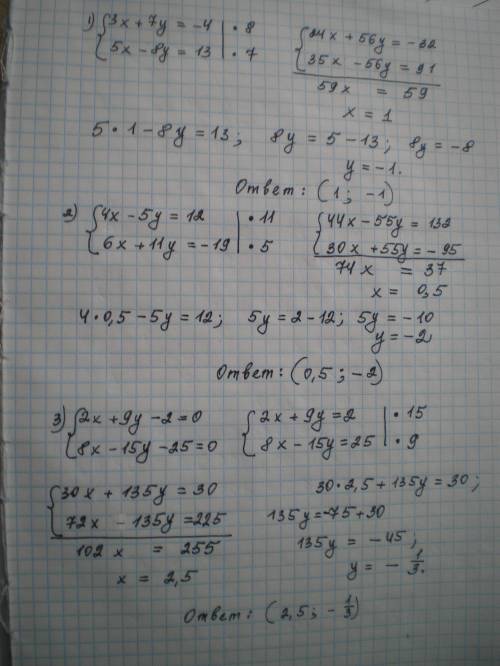 1) {3x + 7y = -4 | · 8
{5x - 8y = 13 | · 7
{24x + 56y = -32
{35x - 56y = 91
59x = 59
x = 1
5 · 1 - 8y = 13; 8y = 5 - 13; 8y = -8
y = -1.
Ответ: (1; -1)
2) {4x - 5y = 12 | · 11
{6x + 11y = -19 | · 5
{44x - 55y = 132
{30x + 55y = -95
74x = 37
x = 0,5
4 · 0,5 - 5y = 12; 5y = 2 - 12; 5y = -10
y = -2
Ответ: (0,5; -2)
3) {2x + 9y - 2 = 0
{8x - 15y - 25 = 0
{2x + 9y = 2 | · 15
{8x - 15y = 25 | · 9
{30x + 135y = 30
{72x - 135y = 225
102x = 255
x = 2,5
30 · 2,5 + 135y = 30;
135y = -75 + 30
135y = -45;
y = -1/3.
Ответ: (2,5; -1/3)